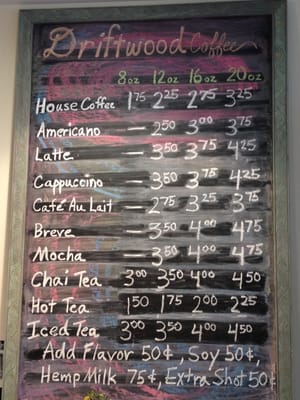 Driftwood Coffee
8oz 12oz 16oz 20oz
House Coffee 1 75 2 25 2 75 3 25
Americano – 2 50 3 00 3 75
Latte – 3 50 3 75 4 25
Cappuccino – 3 50 3 75 4 25
Café Au Lait – 2 75 3 25 3 75
Breve – 3 50 4 00 4 75
Mocha – 3 50 4 00 4 75
Chai Tea 3 00 3 50 4 00 4 50
Hot Tea 1 50 1 75 2 00 2 25
Iced Tea 3 00 3 50 4 00 4 50
Add Flavor 50¢, Soy 50¢,
Hemp Milk 75¢, Extra Shot 50¢